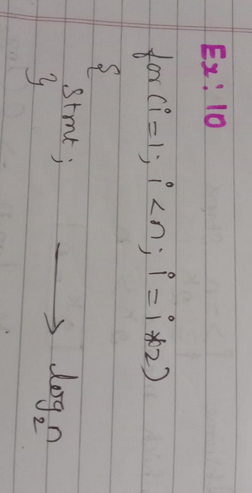 Ex: 10
for(i=1; i<n; i=i*2)
{
Stmt; ⟶ log₂n
}